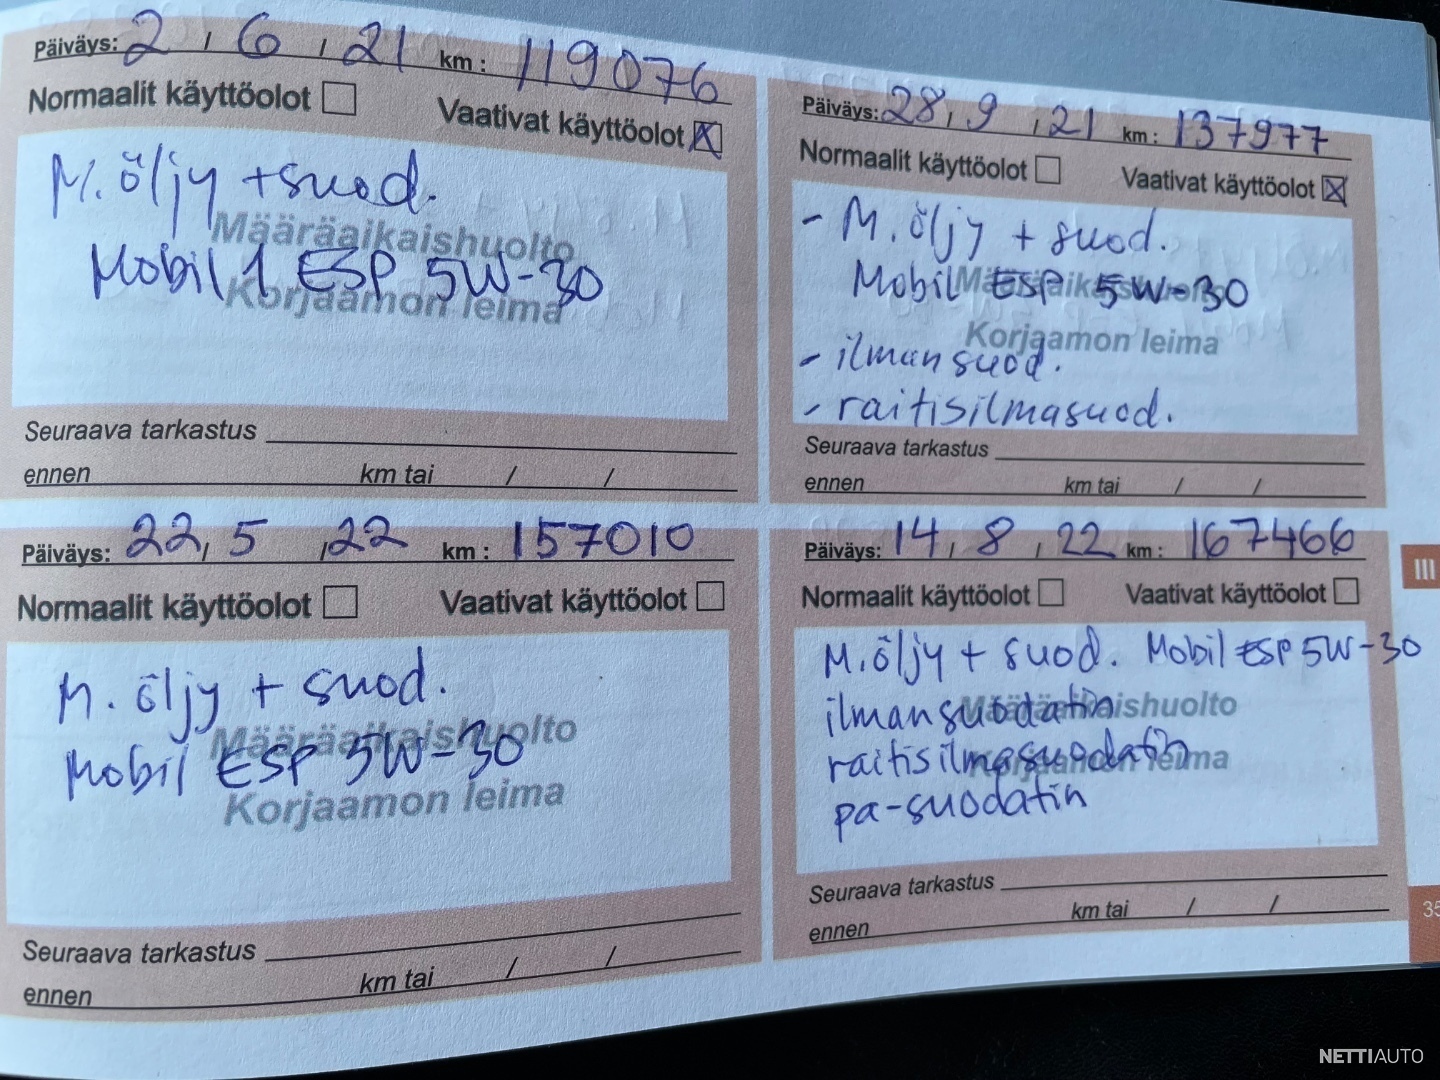 Päiväys: 2 / 6 / 21 km : 119076
Normaalit käyttöolot Vaativat käyttöolot X
M. öljy + suod.
Määräaikaishuolto
Mobil 1 ESP 5W-30
Korjaamon leima
Seuraava tarkastus
ennen km tai / /
Päiväys: 28 / 9 / 21 km : 137977
Normaalit käyttöolot Vaativat käyttöolot X
- M. öljy + suod.
Mobil ESP 5W-30
Määräaikaishuolto
Korjaamon leima
- ilman suod.
- raitisilmasuod.
Seuraava tarkastus
ennen km tai / /
Päiväys: 22 / 5 / 22 km : 157010
Normaalit käyttöolot Vaativat käyttöolot
M. öljy + suod.
Määräaikaishuolto
Mobil ESP 5W-30
Korjaamon leima
Seuraava tarkastus
ennen km tai / /
Päiväys: 14 / 8 / 22 km : 167466
Normaalit käyttöolot Vaativat käyttöolot
M. öljy + suod. Mobil ESP 5W-30
ilmansuodatin
Määräaikaishuolto
raitisilmasuodatin
Korjaamon leima
pa-suodatin
Seuraava tarkastus
ennen km tai / /
III
35
NETTIAUTO